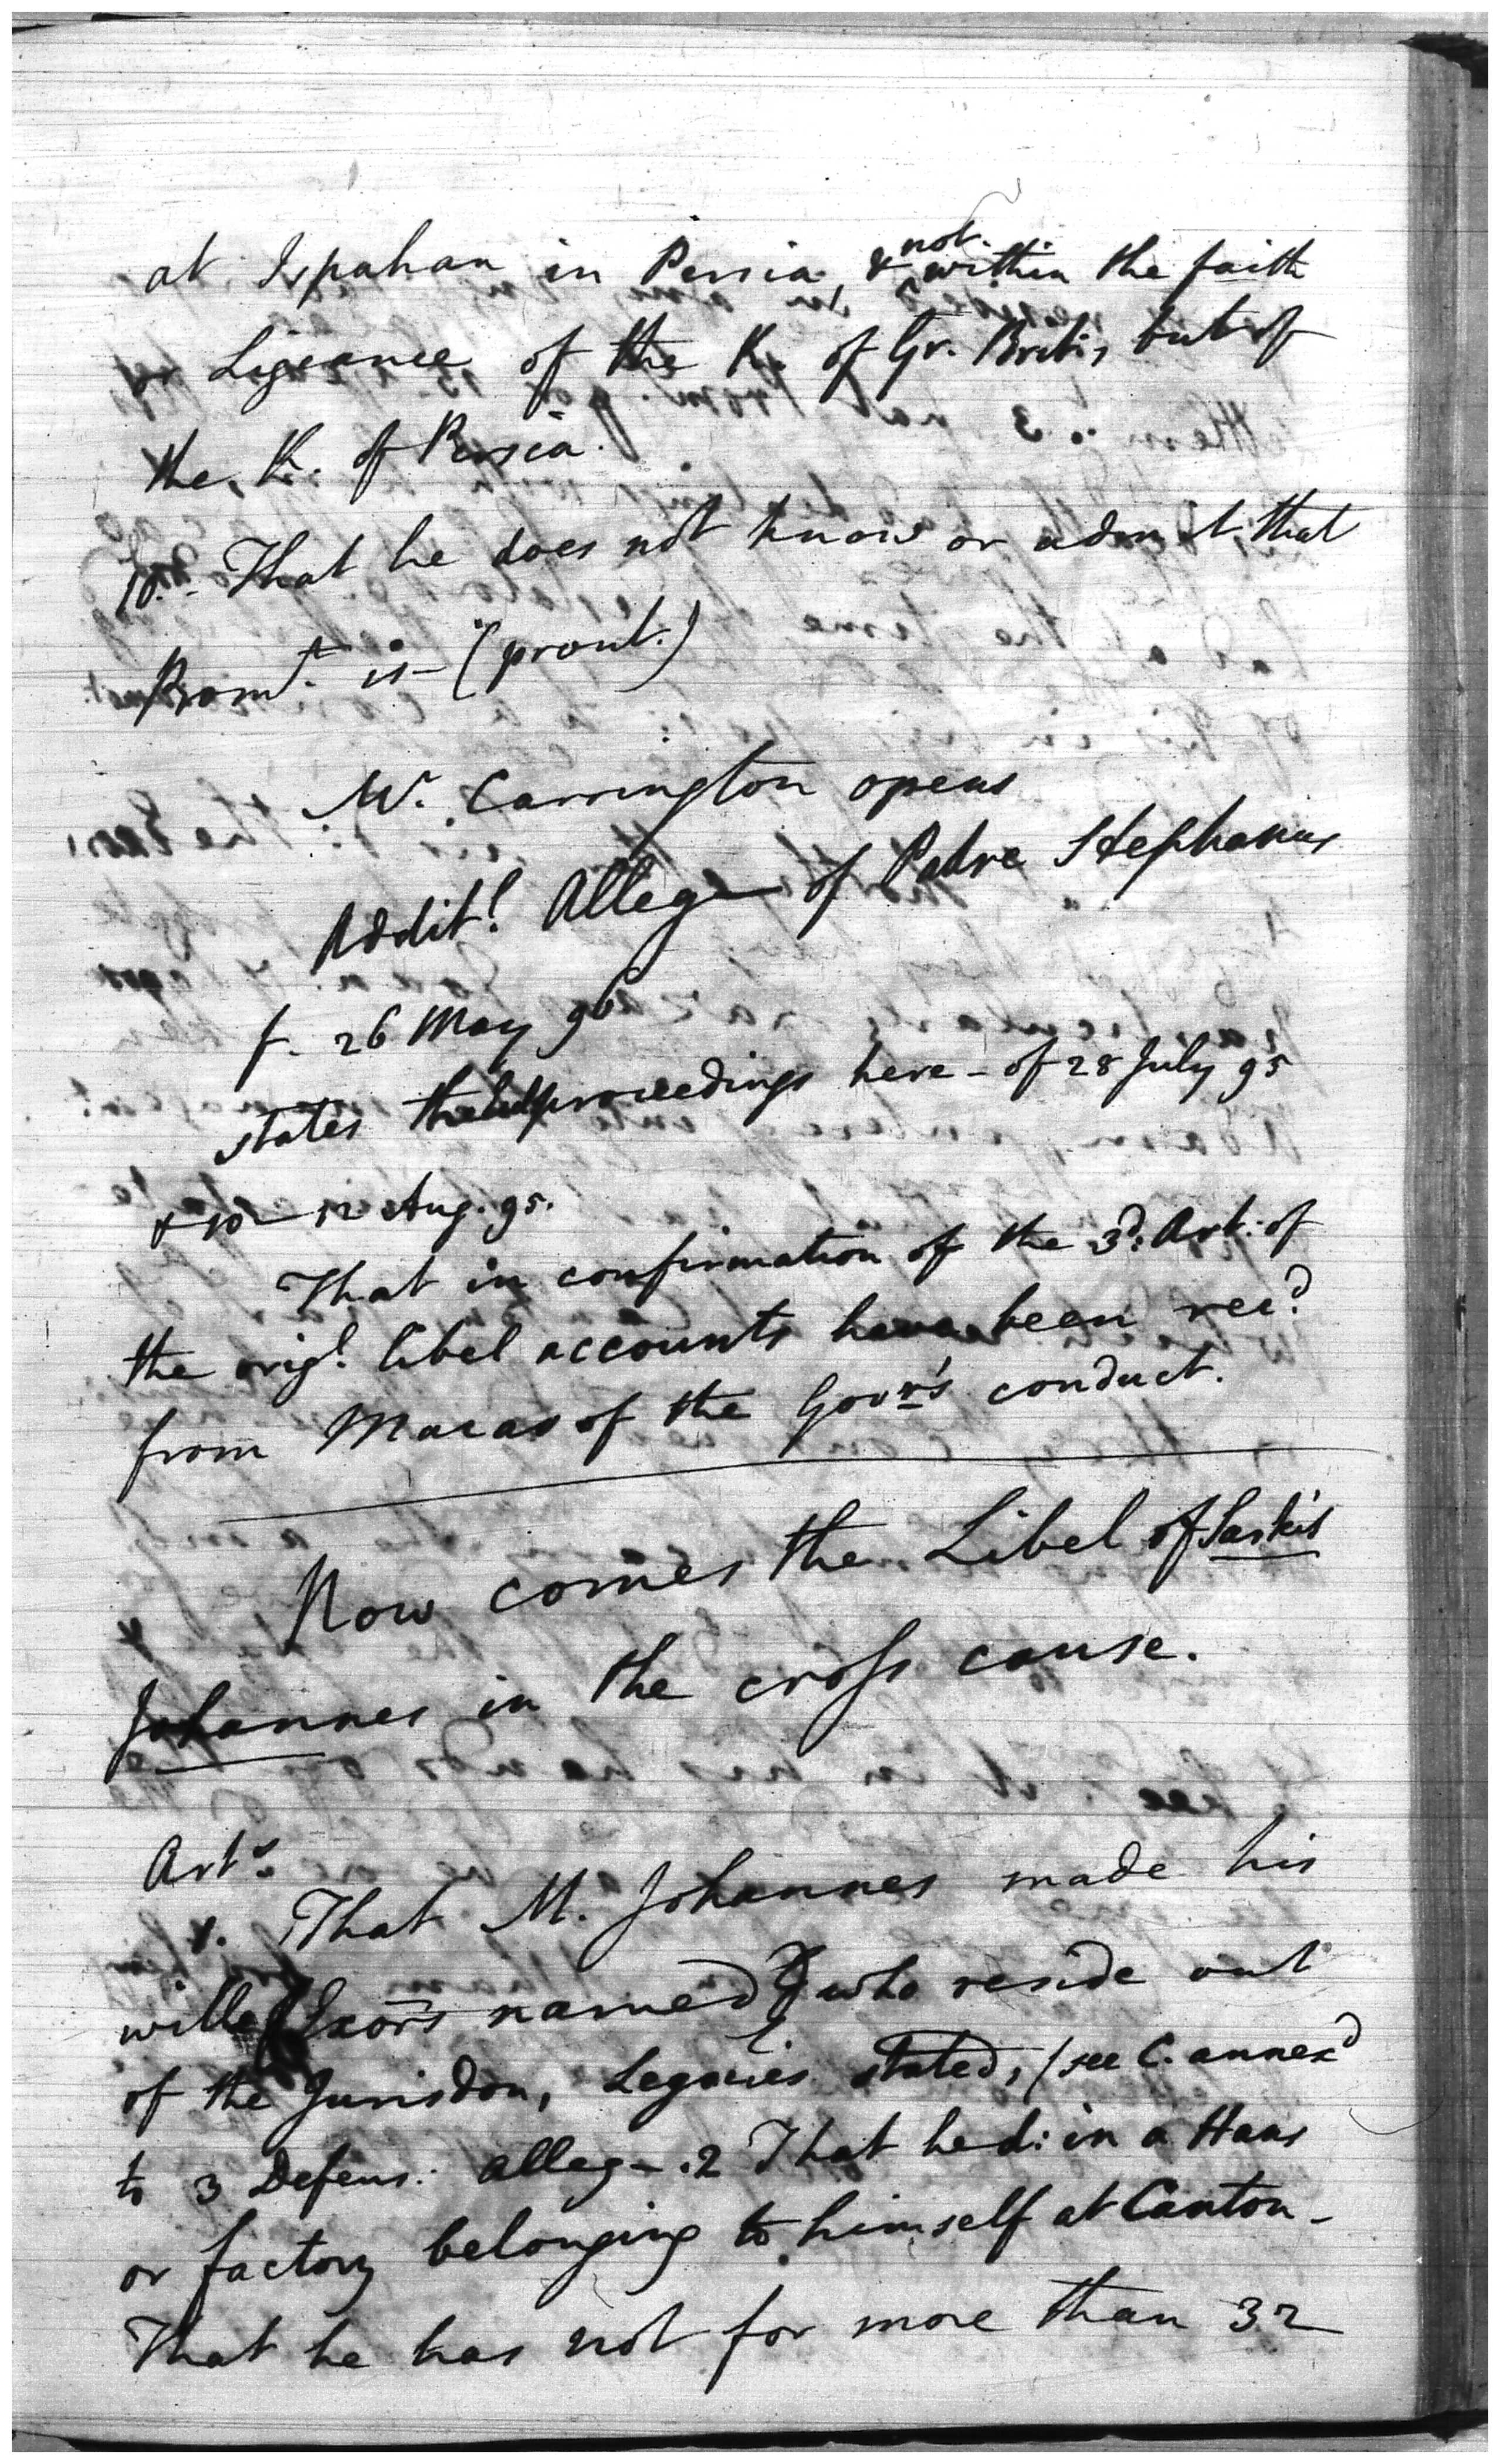 at Ispahan in Persia, & not within the faith
or Ligeance of the K. of Gr. Britn, but of
the K. of Persia.
10. That he does not know or admit that
Promt. is (prout.)
Mr. Carrington opens
Addit.l Allegn of Padre Stephanus
f. 26 May 96
states the proceedings here - of 28 July 95
& 12 Aug. 95.
That in confirmation of the 3d. Art. of
the orig.l libel accounts have been recd.
from Macao of the Govr's conduct.
Now comes the Libel of Sarkis
Johannes in the cross cause.
Arts.
1. That M. Johannes made his
will Exors named & who reside out
of the Jurisdon, Legacies stated, (see C. annexd
to 3 Defens. Alleg - . 2 That he d: in a Haus
or factory belonging to himself at Canton -
That he has not for more than 32